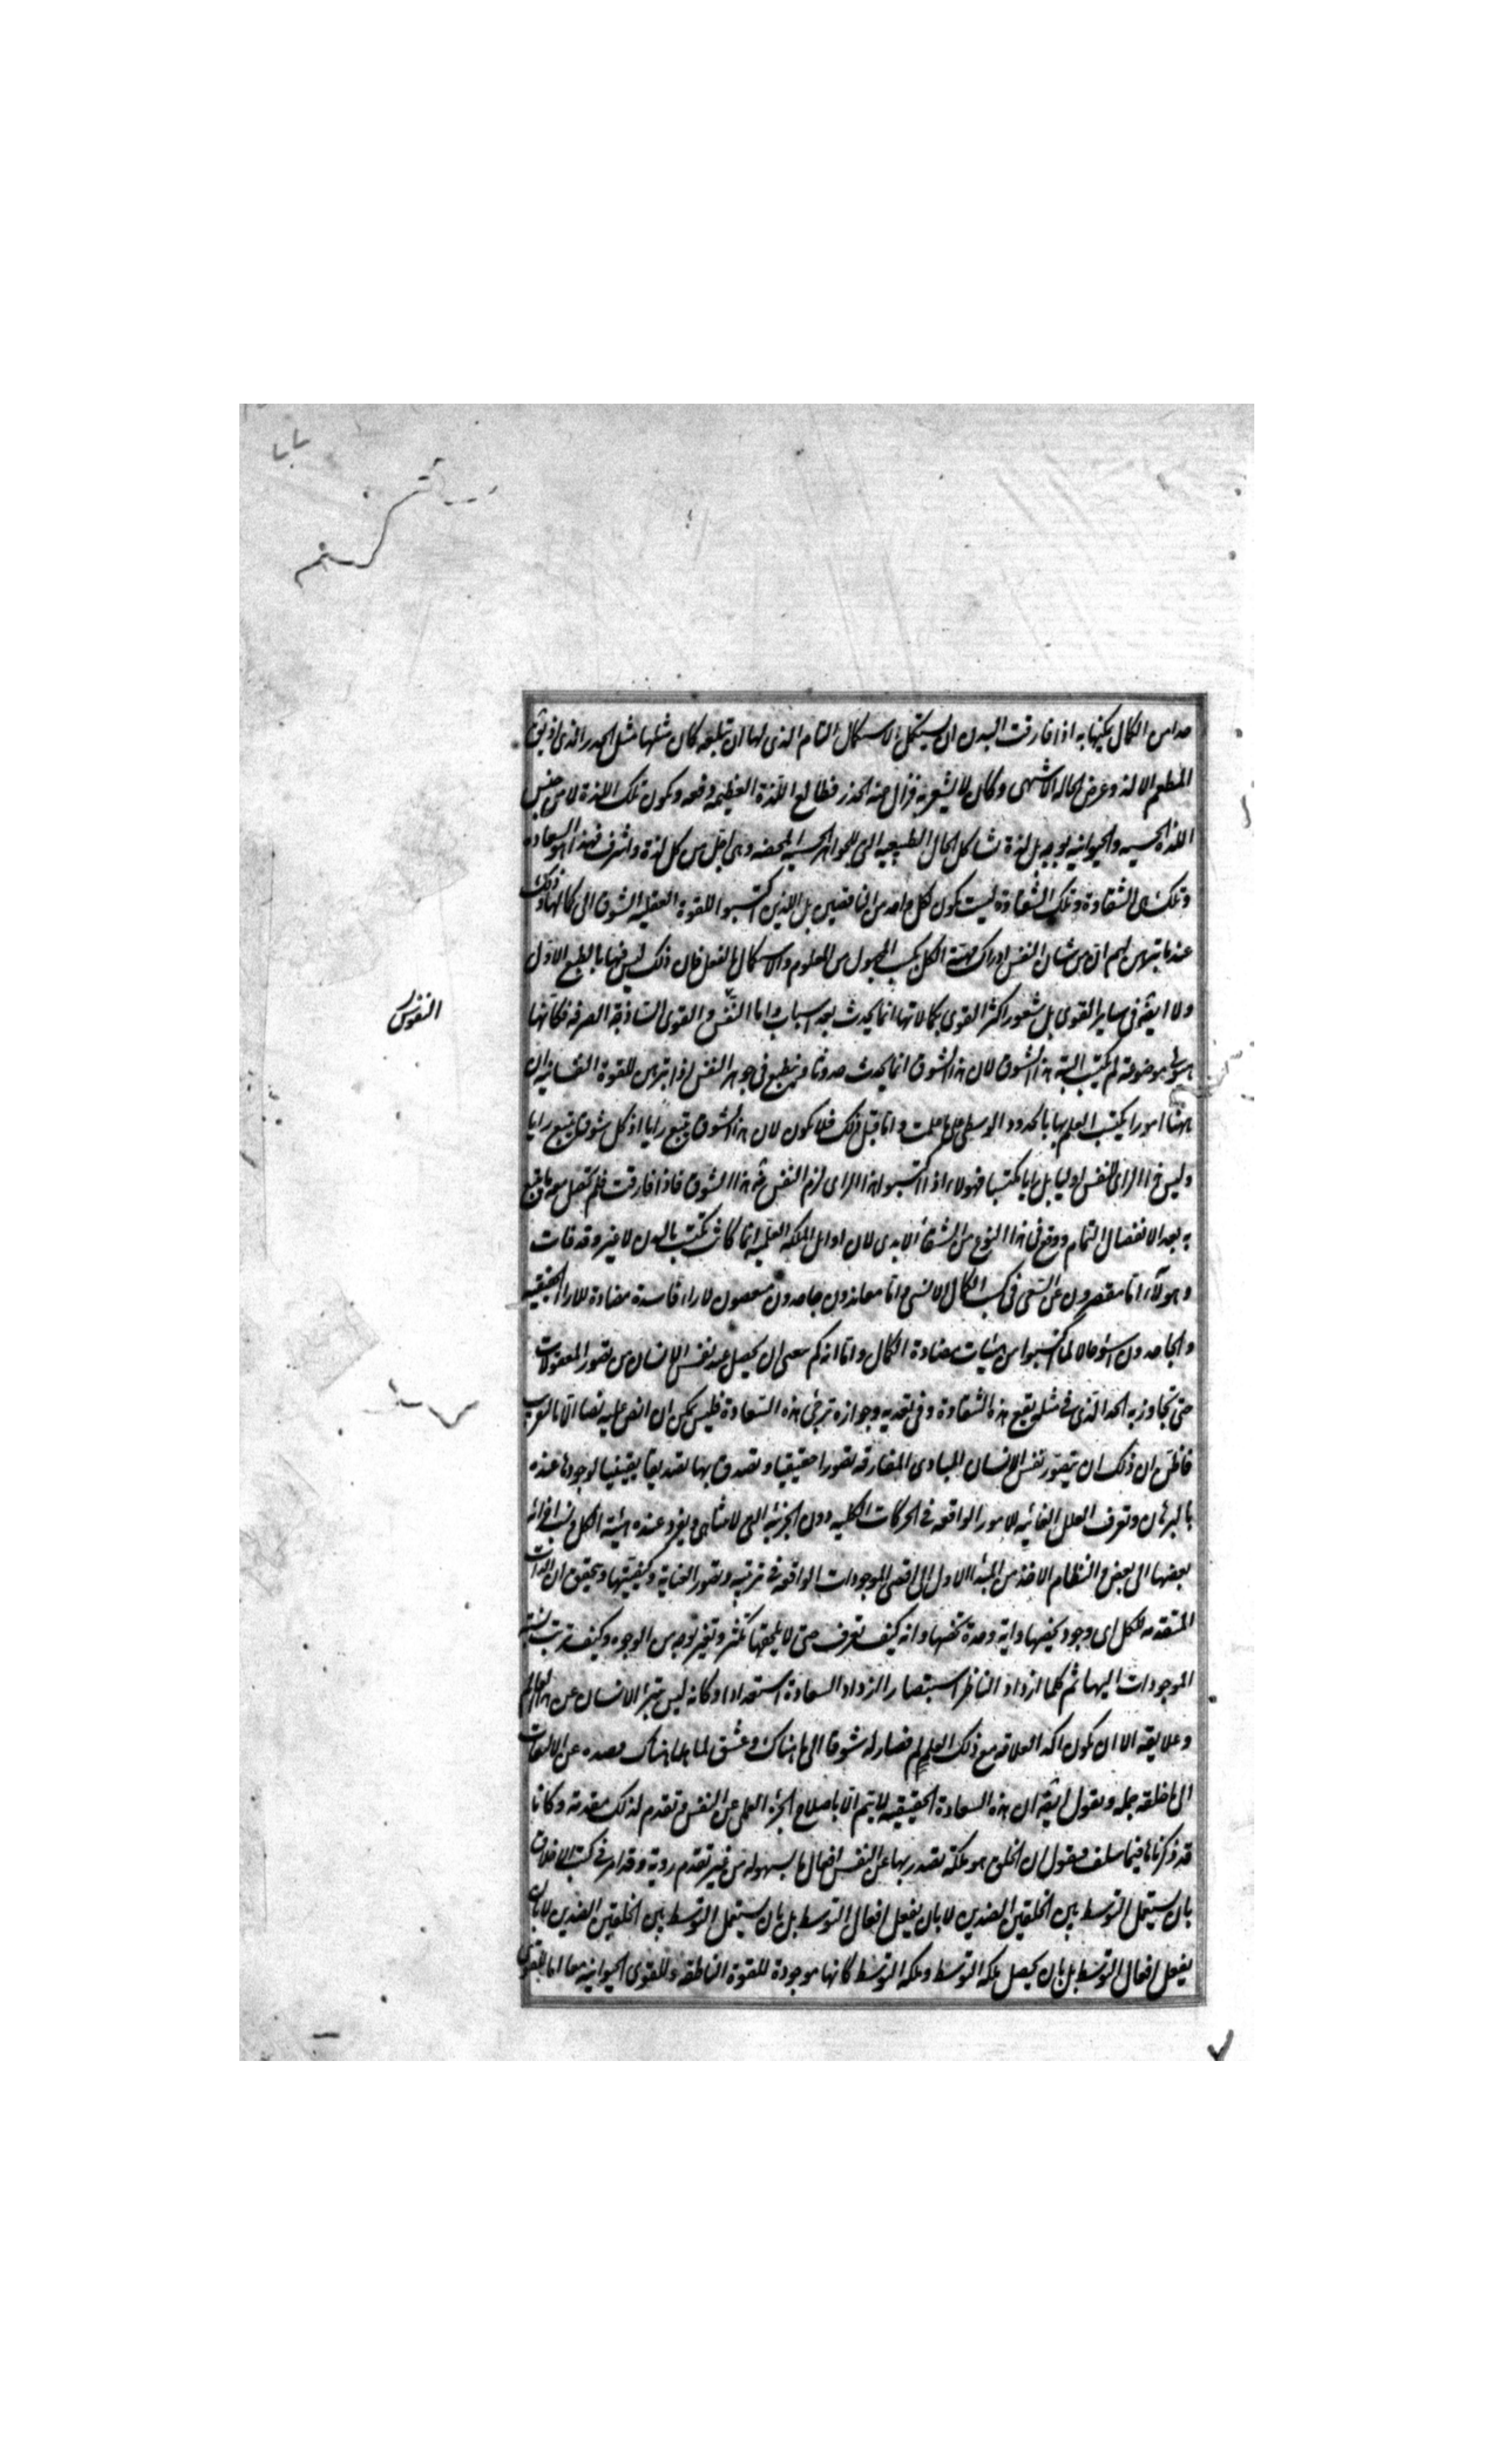 حدا من الكمال يمكنها به اذا فارقت البدن ان يستكمل الاستكمال التام الذى لها ان تبلغه كان مثلها مثل الخدر الذى اذيق
المطعم الالذ وعرض لحاله الاشهى وكان لا يشعر به فزال عنه الخدر فطالع اللذة العظيمه دفعه ويكون تلك اللذة لا من جنس
اللذة الحسيه والحيوانيه بوجه بل لذة تشاكل الحال الطبيعيه التى للجواهر الحسيه المحضه وهى اجل من كل لذة واشرف فهذا هو السعاده
وتلك هى الشقاوة وتلك الشقاوة ليست يكون لكل واحد من الناقصين بل للذين اكتسبوا للقوة العقليه الشوق الى كمالها وذلك
عندما تبرهن لهم ان من شان النفس ادراك مهية الكل بكسب المجهول من المعلوم والاستكمال بالفعل فان ذلك ليس فيها بالطبع الاول
ولا ايضا فى ساير القوى بل شعور اكثر القوى بكمالاتها انما يحدث بعد اسباب واما النفس والقوى الساذجة الصرفه فكانها
هيولى موضوعة لم يكتسب البتة هذا الشوق لان هذا الشوق انما يحدث حدوثا وينطبع فى جوهر النفس اذا تبرهن للقوة النفسانيه ان
ههنا امورا يكتسب العلم بها بالحدود الوسطى على ما علمت واما قبل ذلك فلا يكون لان هذا الشوق يتبع رايا اذ كل شوق يتبع رايا
وليس هذا الراى للنفس اوليا بل رايا مكتسبا فهولاء اذا اكتسبوا هذا الراى لزم النفس ضرورة هذا الشوق فاذا فارقت فلم تحصل معه ما تبلغ
به بعد الانفصال التمام ووقع فى هذا النوع من الشقاء الابدى لان اوايل الملكه العلميه انما كانت تكتسب بالبدن لا غير وقد فات
وهولاء اما مقصرون عن السعى فى كسب الكمال الانسى واما معاندون جاحدون متعصبون لاراء فاسدة مضادة للاراء الحقيقيه
والجاحدون اسوء حالا لما اكتسبوا من هيئات مضادة للكمال واما انه كم ينبغى ان يحصل عند نفس الانسان من تصور المعقولات
حتى تجاوز به الحد الذى فى مثله يقع هذه الشقاوة وفى تعديه وجوازه ترجى هذه السعادة فليس يمكن ان انص عليه نصا الا بالتقريب
فاظن ان ذلك ان يتصور نفس الانسان المبادى المفارقه تصورا حقيقيا وتصدق بها تصديقا يقينيا لوجودها عنده
بالبرهان وتعرف العلل الغائيه للامور الواقعه فى الحركات الكليه دون الجزئيه التى لا تتناهى ويتقرر عنده هيئة الكل ونسب اجزائه
بعضها الى بعض والنظام الاخذ من المبدا الاول الى اقصى الموجودات الواقعه فى ترتيبه وتصور العنايه وكيفيتها وتحقق ان الذات
المتقدمه للكل اى وجود يخصها واية وحدة تخصها وانه كيف تعرف حتى لا يلحقها تكثر وتغير بوجه من الوجوه وكيف ترتب نسبة
الموجودات اليها ثم كلما ازداد الناظر استبصارا ازداد السعادة استعدادا وكانه ليس يتبرأ الانسان عن هذا العالم
وعلايقه الا ان يكون اكد العلاقه مع ذلك العالم فصار له شوق الى ما هناك وعشق لما هناك يصده عن الالتفات
الى ما خلفه جمله ونقول ايضا ان هذه السعادة الحقيقيه لا يتم الا باصلاح الجزء العملى من النفس ونقدم لذلك مقدمة وكانا
قد ذكرناها فيما سلف فنقول ان الخلق هو ملكة تصدر بها عن النفس افعال ما بسهوله من غير تقدم روية وقد امر فى كتب الاخلاق
بان يستعمل التوسط بين الخلقين الضدين لا بان يفعل افعال التوسط بل بان يستعمل التوسط بين الخلقين الضدين لا بان
يفعل افعال التوسط بل بان يحصل ملكه التوسط وملكه التوسط كانها موجودة للقوة الناطقه وللقوى الحيوانيه معا اما للقوى
النفوس